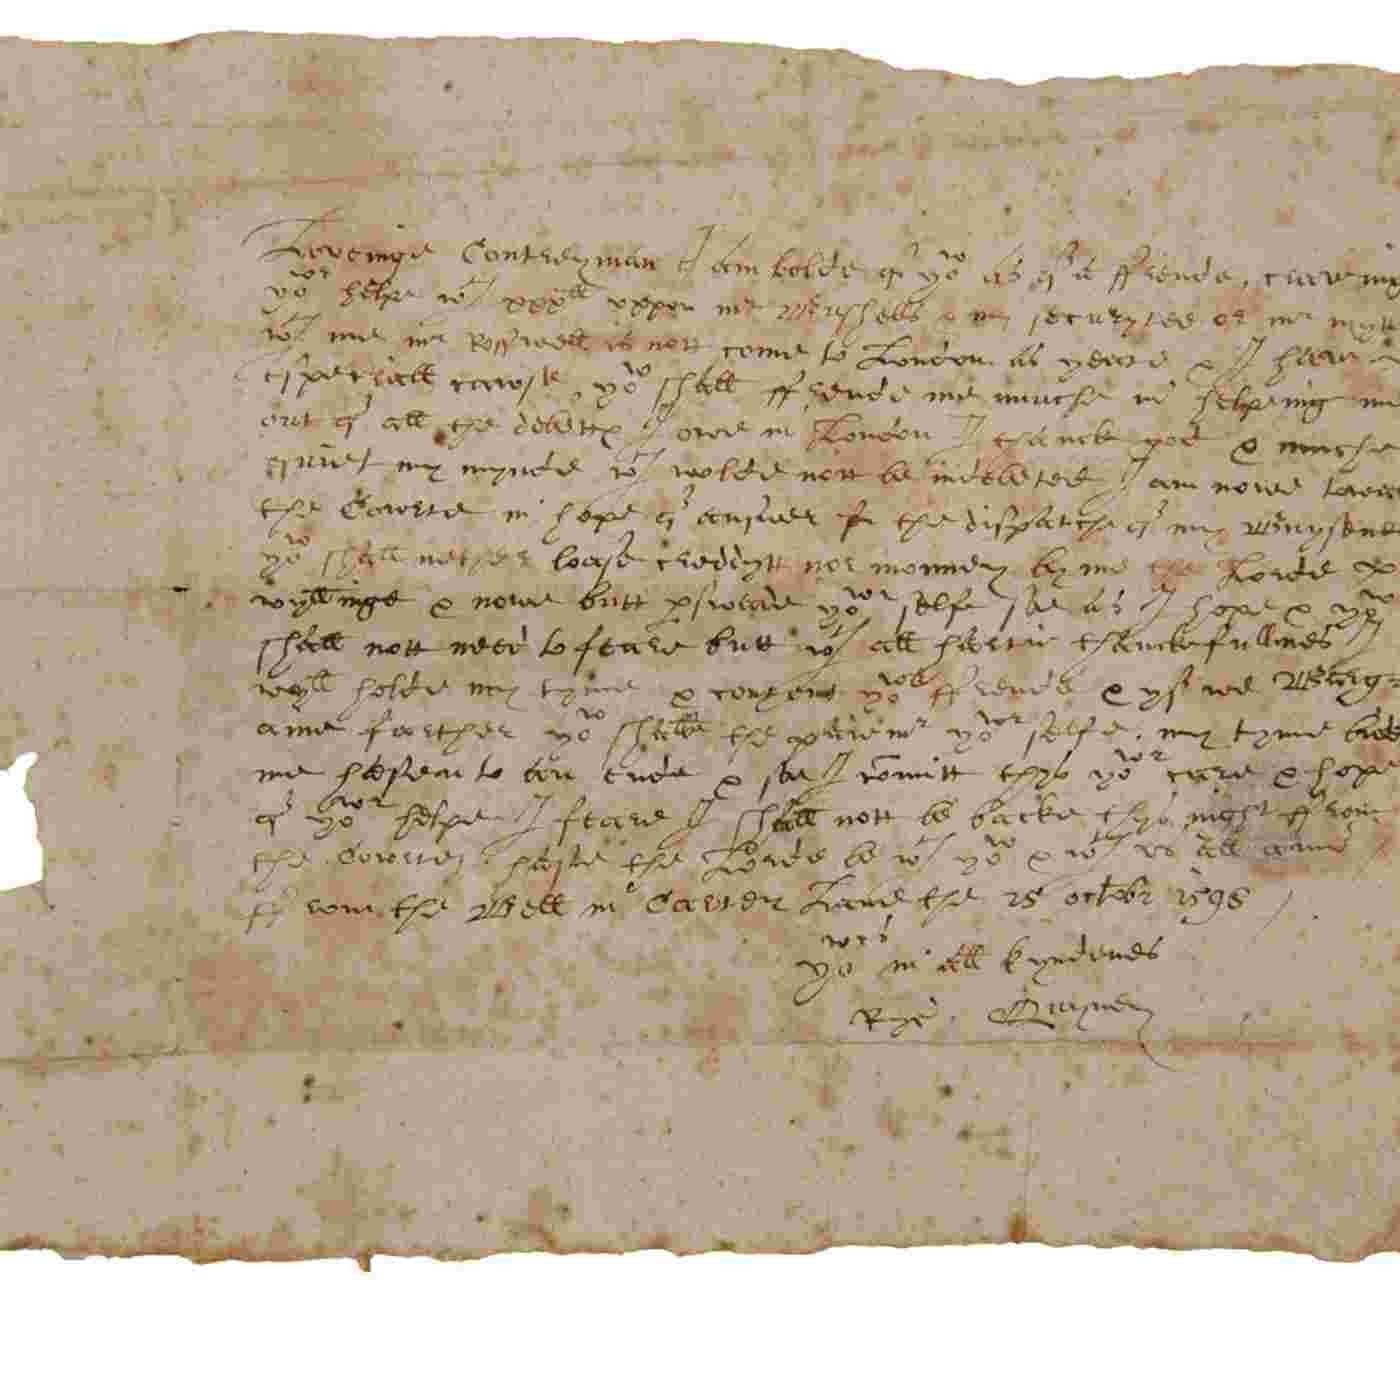 Loveinge Contreyman I am bolde of yow as of a ffrende, craveinge
yowr helpe wth xxxll vppon mr Bushells & my securytee or mr mytt
wth me mr Rosswell is nott come to London as yeate & I have
especiall cawse, yow shall ffrende me muche in helpeing me
out of all the debettes I owe in London I thancke god & muche
quiet my mynde wch wolde nott be indebeted I am nowe towa
the Cowrte in hope of answer for the dispatche of my Buysenes
yow shall nether loase creddytt nor monney by me the Lorde
wyllinge & nowe butt pswade yowr selfe soe as I hope & yow
shall nott need to feare butt wth all hartie thanckefullnes I
wyll holde my tyme & content yowr ffrende & yf we Barg=
aine farther yow shalbe the paiemr yowr selfe. my tyme bidd
me hasten to an ende & soe I comitt thys yowr care & hope
of yowr helpe I feare I shall nott be backe thys night ffrom
the Cowrte. haste the Lorde be wth yow & wth vs all amen
ffrom the Bell in Carter Lane the 25 octobr 1598
yowrs in all kyndenes
Ryc. Quyney